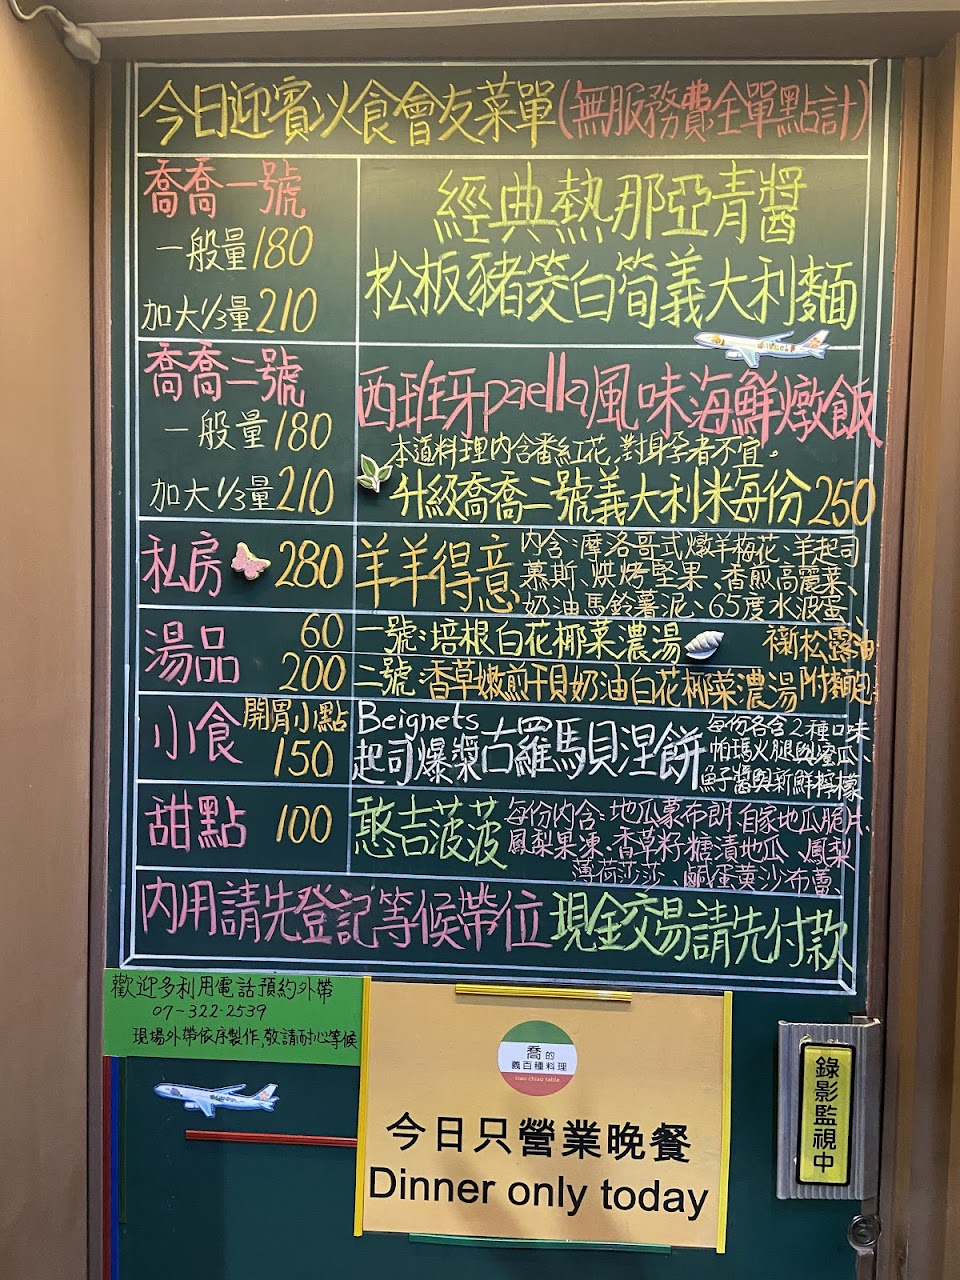 今日迎賓以食會友菜單(無服務費全單點計)
喬喬一號
一般量180
加大1/3量210
經典熱那亞青醬
松板豬筊白筍義大利麵
喬喬二號
一般量180
加大1/3量210
西班牙paella風味海鮮燉飯
本道料理內含番紅花,對身孕者不宜。
升級喬喬二號義大利米每份250
私房 280
羊羊得意
內含:摩洛哥式燉羊梅花、羊起司
慕斯、烘烤堅果、香煎高麗菜、
奶油馬鈴薯泥、65度水波蛋、
湯品
60 一號:培根白花椰菜濃湯
200 二號:香草嫩煎干貝奶油白花椰菜濃湯附麵包
松露油
小食
開胃小點
150
Beignets
起司爆漿古羅馬貝涅餅
每份各含2種口味
帕瑪火腿與蜜瓜、
魚子醬與新鮮檸檬
甜點 100
憨吉菠菠
每份內含:地瓜慕布朗、自家地瓜脆片、
鳳梨果凍、香草籽糖漬地瓜、鳳梨
薄荷莎莎、鹹蛋黃沙布蕾、
內用請先登記等候帶位 現金交易請先付款
歡迎多利用電話預約外帶
07-322-2539
現場外帶依序製作,敬請耐心等候
喬的
義百種料理
ciao chiao table
今日只營業晚餐
Dinner only today
錄影監視中